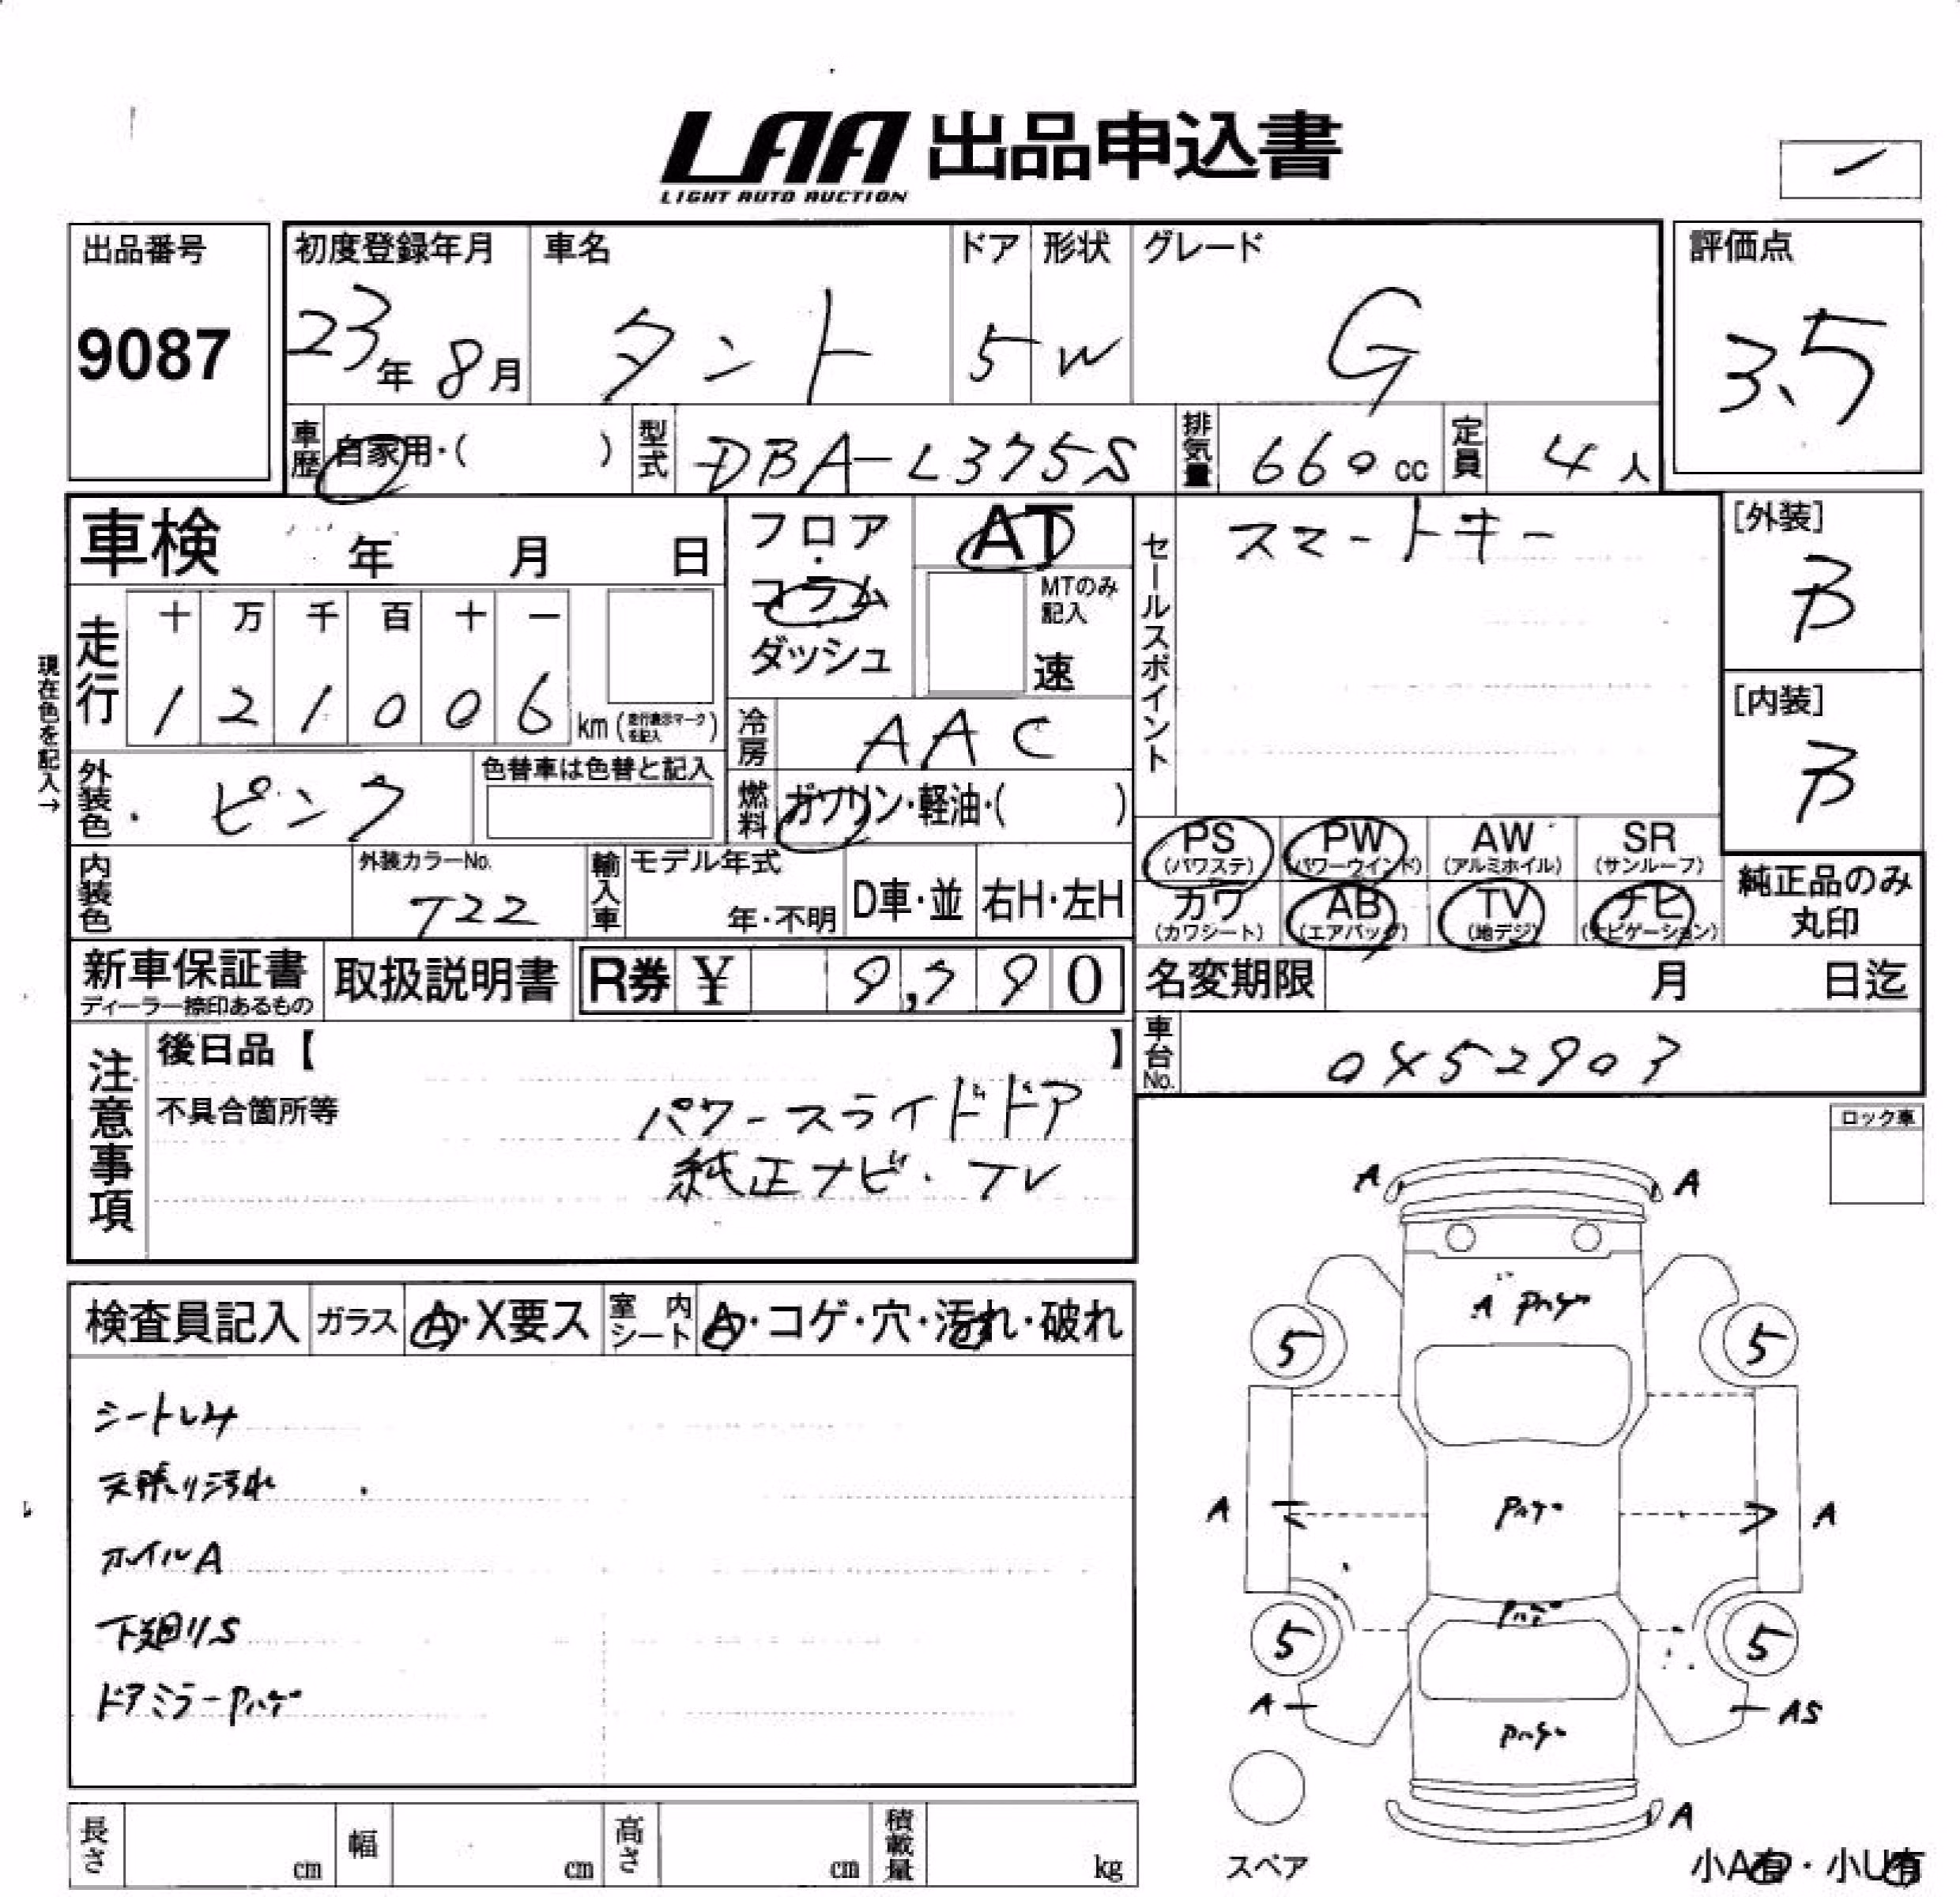 LAA 出品申込書
LIGHT AUTO AUCTION
出品番号
9087
初度登録年月
23年 8月
車名
タント
ドア
5
形状
W
グレード
G
評価点
3.5
車歴 自家用・( )
型式 DBA-L375S
排気量 660 cc
定員 4 人
車検 年 月 日
フロア・コラム
ダッシュ
AT
MTのみ記入
速
セールスポイント
スマートキー
[外装]
B
[内装]
B
現在色を記入→
走行
十 万 千 百 十 一
1 2 1 0 0 6 km (走行表示マークを記入)
冷房 AAC
外装色 ピンク
色替車は色替と記入
燃料 ガソリン・軽油・( )
PS (パワステ)
PW (パワーウインド)
AW (アルミホイル)
SR (サンルーフ)
カワ (カワシート)
AB (エアバッグ)
TV (地デジ)
ナビ (ナビゲーション)
純正品のみ
丸印
内装色
外装カラーNo.
T22
輸入車
モデル年式
年・不明
D車・並
右H・左H
新車保証書
ディーラー捺印あるもの
取扱説明書
R券 ¥ 9,790
名変期限 月 日迄
車台No. 0452903
注意事項
後日品【 】
不具合箇所等
パワースライドドア
純正ナビ・TV
ロック車
検査員記入
ガラス A・X要ス
室内シート A・コゲ・穴・汚れ・破れ
シートしみ
天張り汚れ
ホイルA
下廻りS
ドアミラーPハゲ
A A
A Pハゲ
5 5
A Pハゲ A
Pハゲ
5 5
A AS
Pハゲ
A
スペア
小A有・小U有
長さ cm
幅 cm
高さ cm
積載量 kg